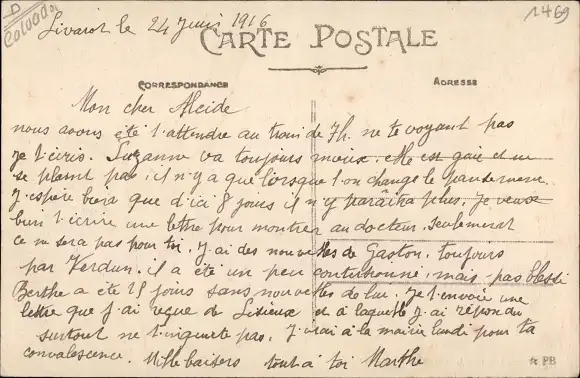 D
Calvados
1469
Livarot le 24 Juin 1916
CARTE POSTALE
CORRESPONDANCE
ADRESSE
Mon cher Alcide
nous avons été t'attendre au train de 7h. ne te voyant pas
je t'écris. Suzanne va toujours mieux. Elle est gaie et ne
se plaint pas, il n'y a que lorsque l'on change le pansement.
J'espère bien que d'ici 8 jours il n'y paraîtra plus. Je veux
bien t'écrire une lettre pour montrer au docteur. Seulement
ce ne sera pas pour toi. J'ai des nouvelles de Gaston. toujours
par Verdun. il a été un peu contusionné, mais pas blessé
Berthe a été 15 jours sans nouvelles de lui. Je t'envoie une
lettre que j'ai reçue de Lisieux et à laquelle j'ai répondu
surtout ne t'inquiète pas. J'irai à la mairie lundi pour ta
convalescence. Mille baisers tout à toi Marthe
PB